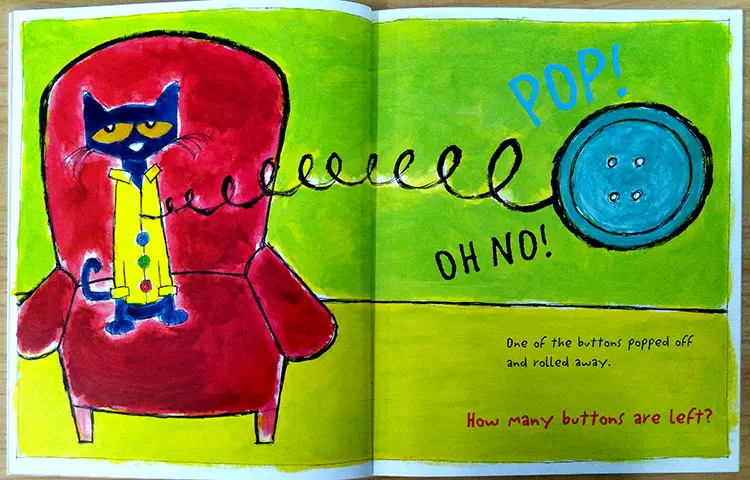 POP!
OH NO!
One of the buttons popped off
and rolled away.
How many buttons are left?